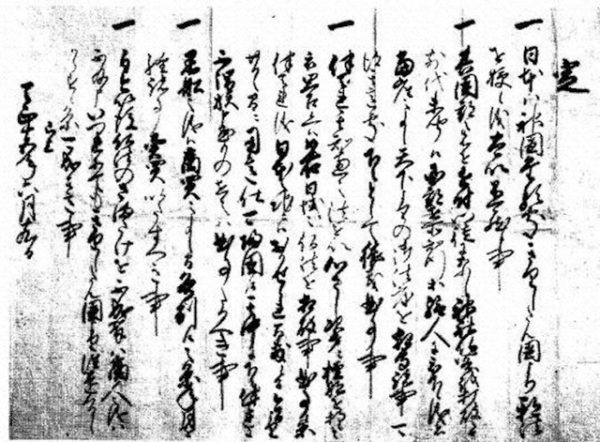 定
一 日本ハ神国たる処きりしたん国より邪法
を授候儀太以不可然候事
一 其国郡之者を近付門徒になし神社仏閣を打破之由
前代未聞候国郡在所知行等給人に被下候儀者
当座之事候天下よりの御法度を相守諸事可
得其意処下々として猥義曲事事
一 伴天連其知恵之法を以心さし次第ニ檀那を持候
と被思召候へハ如右日域之仏法を相破事曲事候条
伴天連儀日本之地ニハおかせられ間敷候間今日より
廿日之間ニ用意仕可帰国候其中に下々伴天連
に不謂族申懸もの在之ハ曲事たるへき事
一 黒船之儀ハ商買之事候間各別候之条年月を
経諸事売買いたすへき事
一 自今以後仏法のさまたけを不成輩ハ商人之儀ハ
不及申いつれにてもきりしたん国より往還くる
しからす候条可成其意事
已上
天正十五年六月十九日